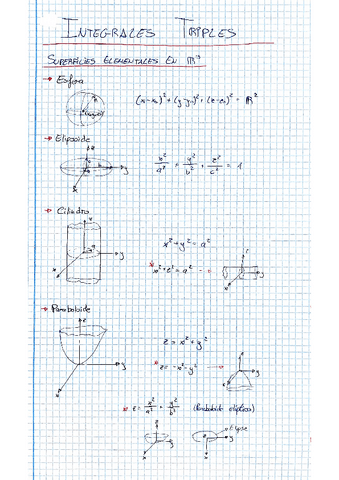 INTEGRALES TRIPLES
SUPERFICIES ELEMENTALES EN ℝ³
→ Esfera
(x-x₀)² + (y-y₀)² + (z-z₀)² = R²
→ Elipsoide
x²/a² + y²/b² + z²/c² = 1
→ Cilindro
x² + y² = a²
* x² + z² = a² →
→ Paraboloide
z = x² + y²
* z = -x² - y² →
* z = x²/a² + y²/b² (Paraboloide elíptico)
elipse